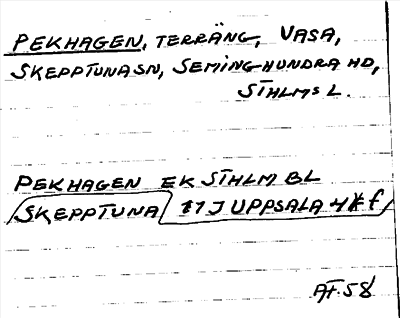 PEKHAGEN, TERRÄNG, VASA,
SKEPPTUNA SN, SEMINGHUNDRA HD,
STHLMS L.
PEKHAGEN EK STHLM BL
SKEPPTUNA 117 J UPPSALA 4 f
ÄT. 58